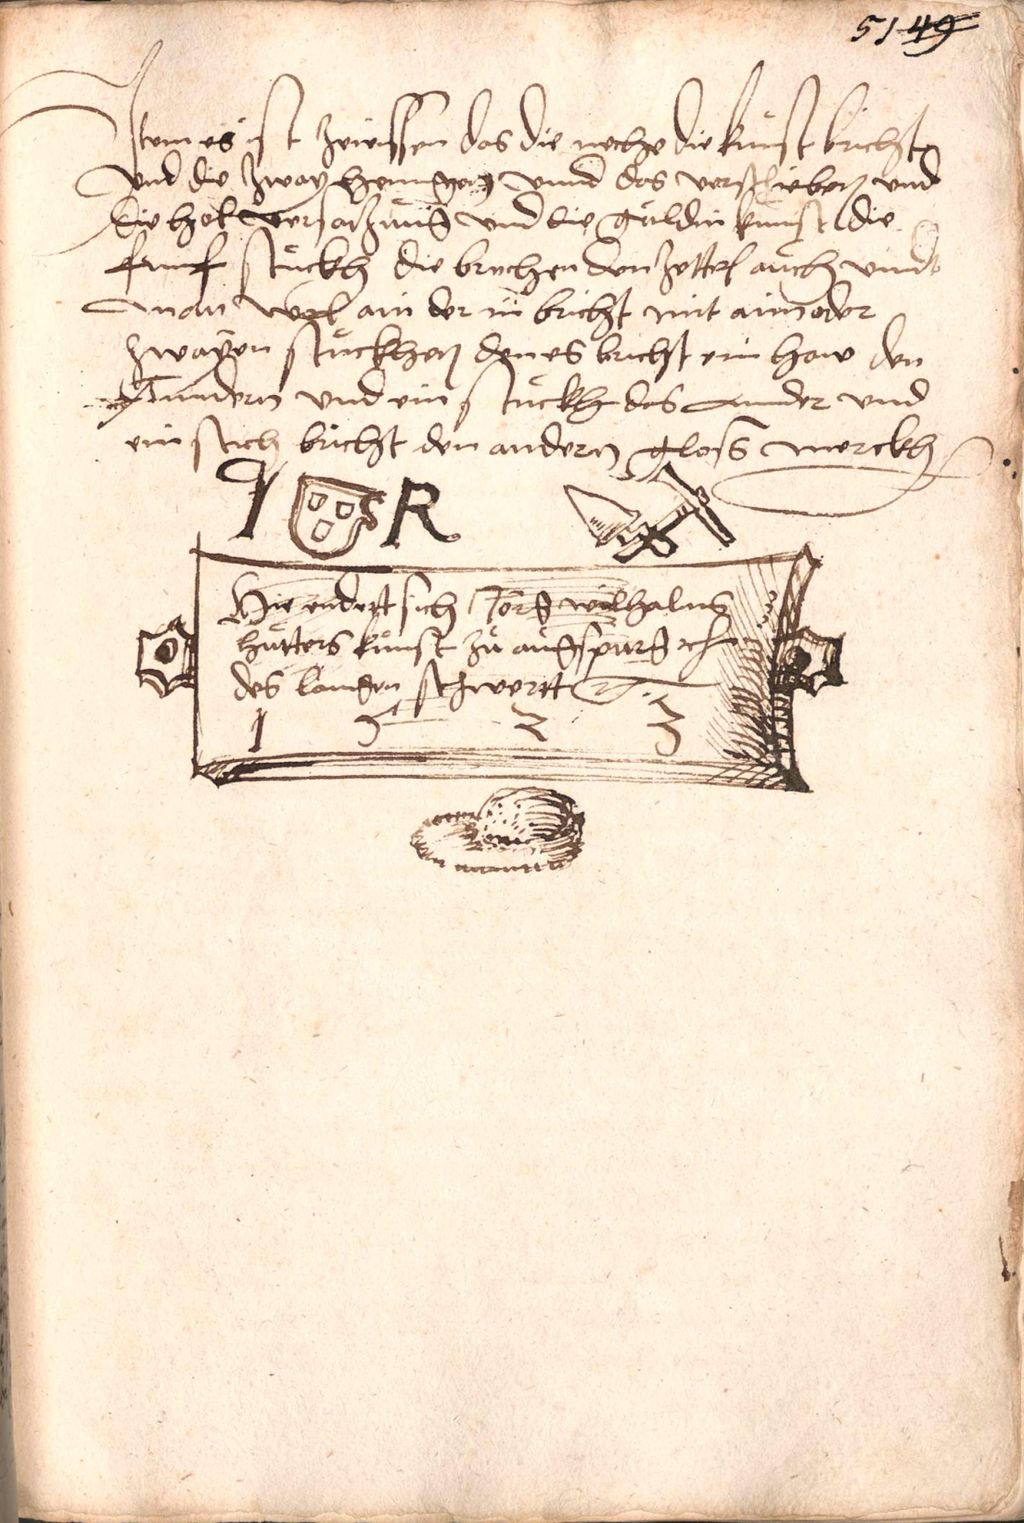 51 49
Item es ist zewissen das die neche die kunst bricht
Und die zway hengen unnd das verschieben und
die hel versatzung und die guldin kunst die
funf stuckh die brechen den zettel auch unnd
man wol ain der in bricht mit aim oder
zwayen stuckhen den es bricht ein haw den
Anndern und ein stuckh das Annder und
ein stich bricht den andern glosß merckh
I S R
Hie enndert sich Jorg wilhalms
hutters kunst zu augspurg
des langen schwertt
1 5 2 3